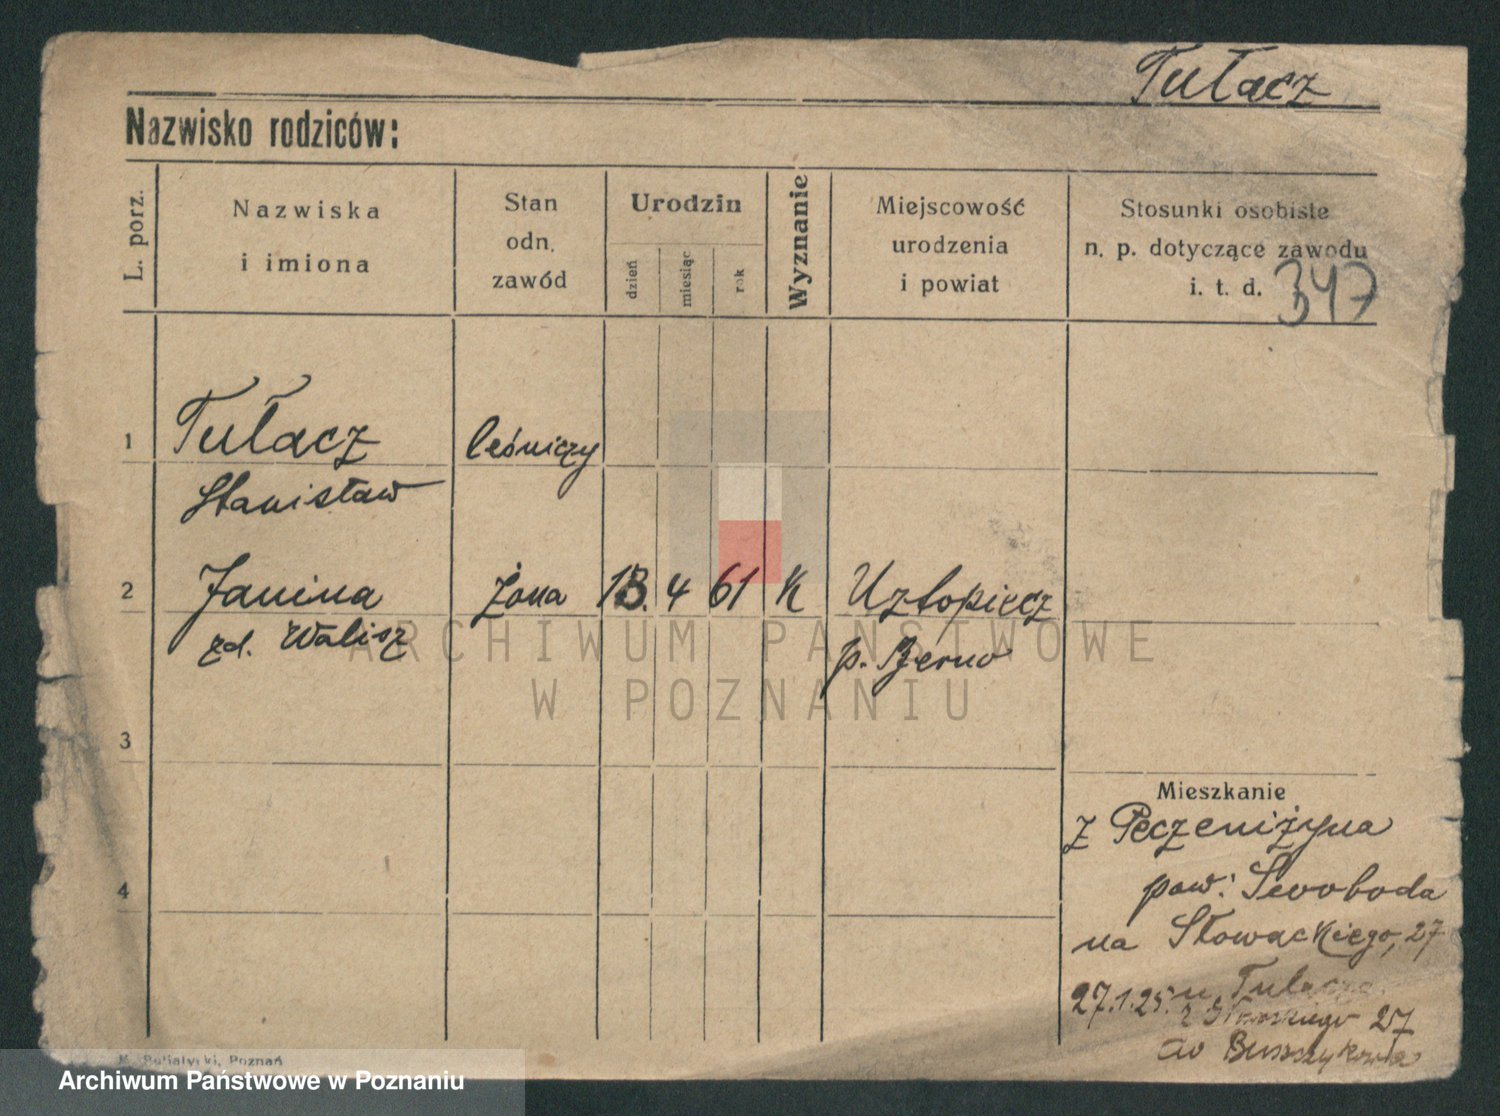 Tułacz
Nazwisko rodziców:
L. porz.
Nazwiska
i imiona
Stan
odn.
zawód
Urodzin
dzień
miesiąc
rok
Wyznanie
Miejscowość
urodzenia
i powiat
Stosunki osobiste
n. p. dotyczące zawodu
i. t. d.
347
1 Tułacz leśniczy
Stanisław
2 Janina Żona 13. 4 61 K
zd. Walisz
p.
3
Mieszkanie
z Peczeniżyna
4
pow:
na Słowackiego, 27
27.1.25. u Tułacza
z 27
do
Poznań
ARCHIWUM PAŃSTWOWE
W POZNANIU
Archiwum Państwowe w Poznaniu